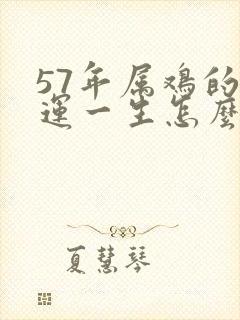 57年属鸡的
運一生怎麼
夏慧琴